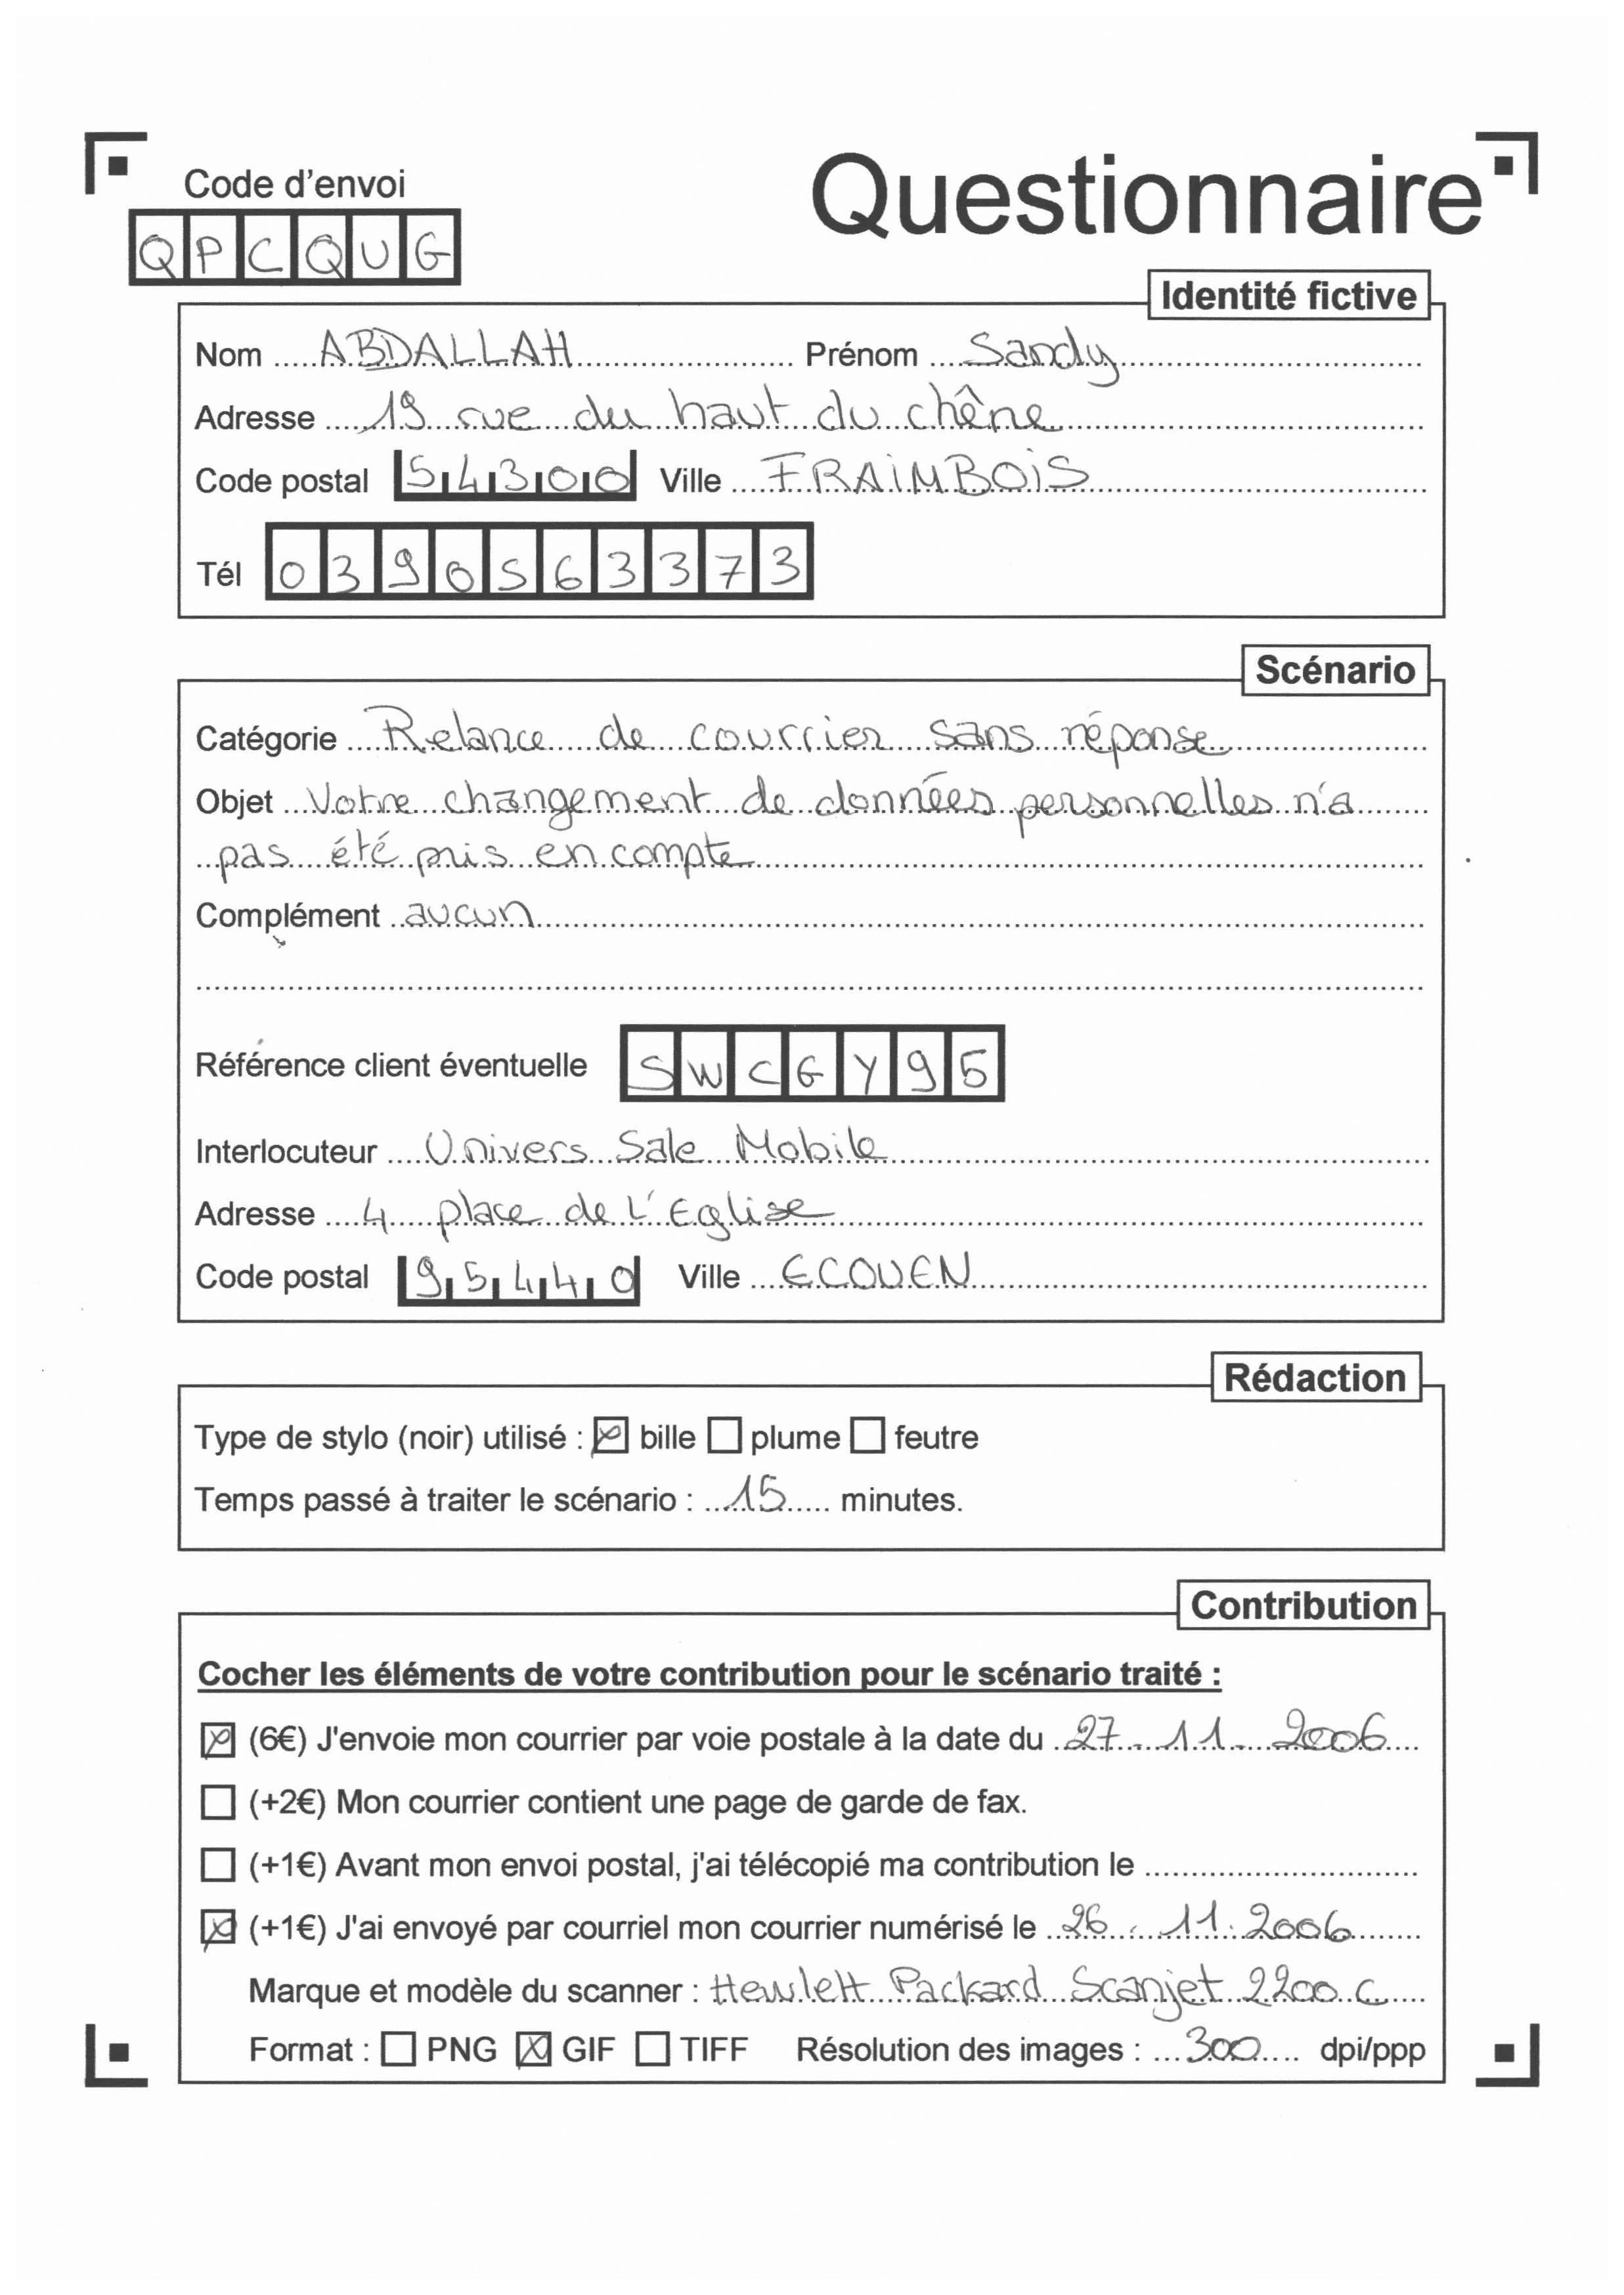 Code d'envoi
Questionnaire
QPCQUG
Identité fictive
Nom ABDALLAH Prénom Sandy
Adresse 19 rue du haut du chêne
Code postal 54300 Ville FRAIMBOIS
Tél 0390563373
Scénario
Catégorie Relance de courrier sans réponse
Objet Votre changement de données personnelles n'a
pas été pris en compte
Complément aucun
Référence client éventuelle SWCGY95
Interlocuteur Univers Sale Mobile
Adresse 4 place de l'Eglise
Code postal 95440 Ville ECOUEN
Rédaction
Type de stylo (noir) utilisé : ☒ bille ☐ plume ☐ feutre
Temps passé à traiter le scénario : 15 minutes.
Contribution
Cocher les éléments de votre contribution pour le scénario traité :
☒ (6€) J'envoie mon courrier par voie postale à la date du 27-11-2006
☐ (+2€) Mon courrier contient une page de garde de fax.
☐ (+1€) Avant mon envoi postal, j'ai télécopié ma contribution le
☒ (+1€) J'ai envoyé par courriel mon courrier numérisé le 26.11.2006
Marque et modèle du scanner : Hewlett Packard Scanjet 2200 c
Format : ☐ PNG ☒ GIF ☐ TIFF Résolution des images : 300 dpi/ppp